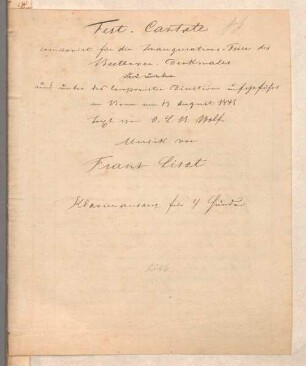 Fest-Cantate
componirt für die Inaugurations-Feier des
Beethoven-Denkmales
und unter des Componisten Direction aufgeführt
in Bonn am 13 August 1845
Text von O. L. B. Wolff
Musik von
Franz Liszt
Klavierauszug für 4 Hände